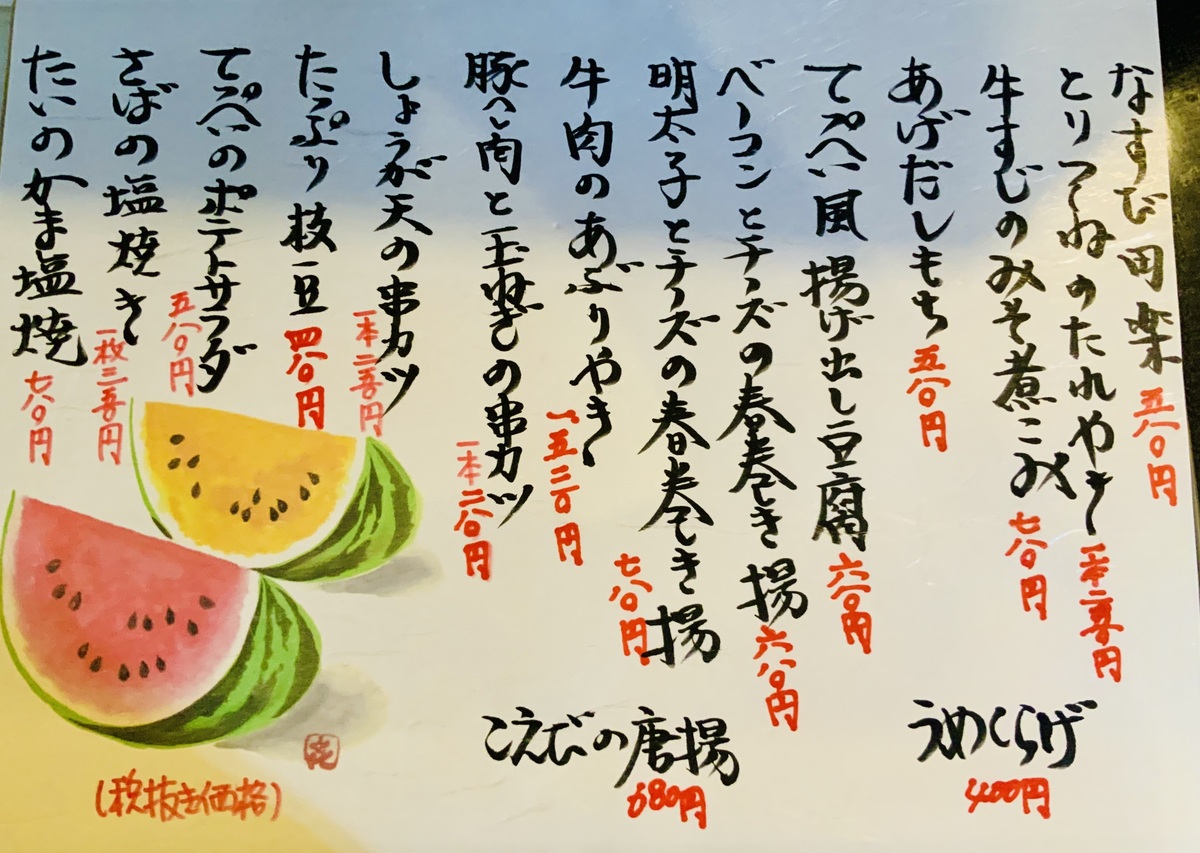 なすび田楽 五八〇円
とりつくねのたれやき 一本二五〇円
牛すじのみそ煮こみ 七八〇円
あげだしもち 五八〇円
てっぺい風揚げ出し豆腐 六八〇円
ベーコンとチーズの春巻き揚 六八〇円
明太子とチーズの春巻き揚 七八〇円
牛肉のあぶりやき
豚へれ肉と玉ねぎの串カツ 一本二八〇円
しょうが天の串カツ 一本二五〇円
たっぷり枝豆 四八〇円
てっぺいのポテトサラダ 五八〇円
さばの塩焼き 一枚三五〇円
たいのかま塩焼 七八〇円
うめくらげ
400円
こえびの唐揚
680円
(税抜き価格)